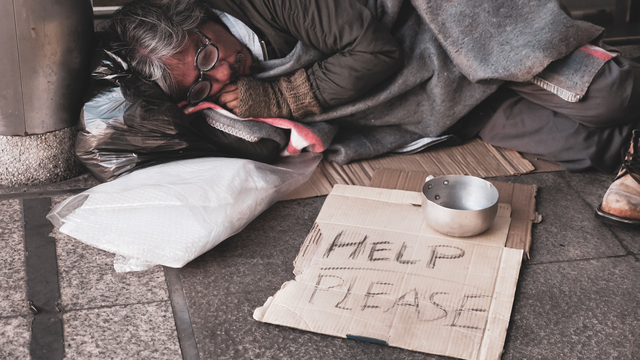 HELP
PLEASE